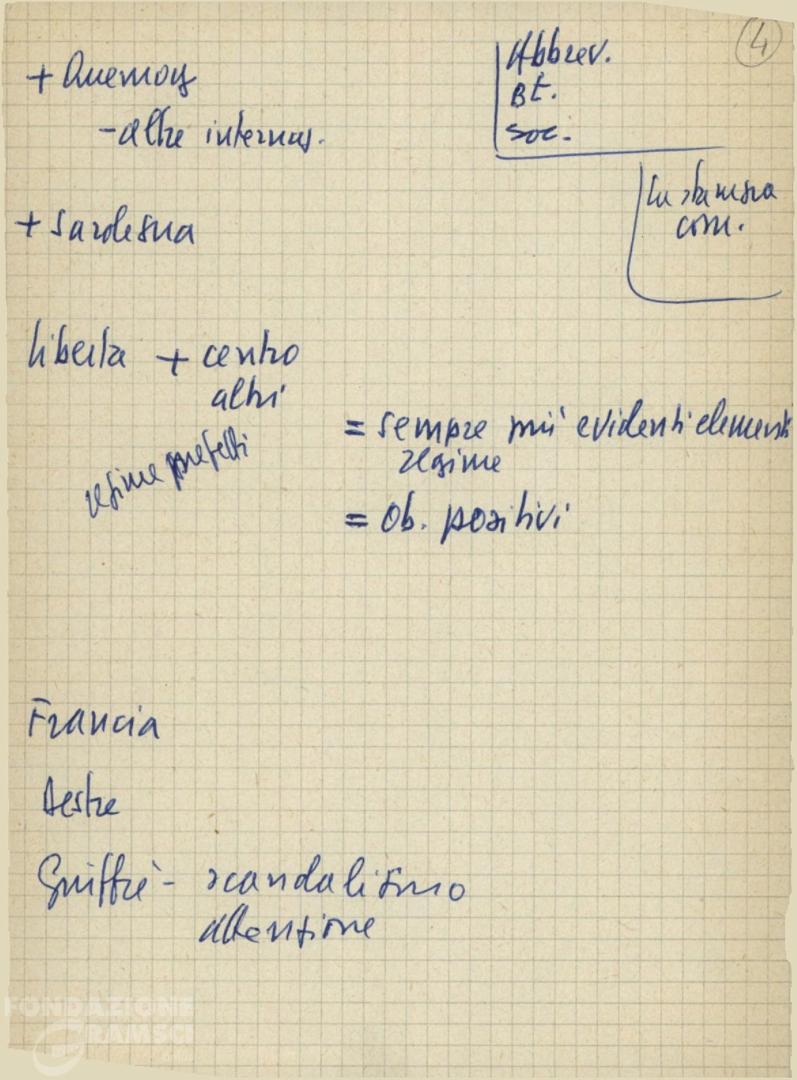 4
+ Quemoy
- altre internaz.
Abbrev.
Bt.
soc.
La stampa
com.
+ Sardegna
libertà + centro
altri
regime prefetti
= sempre più evidenti elementi
regime
= Ob. positivi
Francia
Destre
Giuffrè - scandalismo
attenzione
FONDAZIONE
GRAMSCI